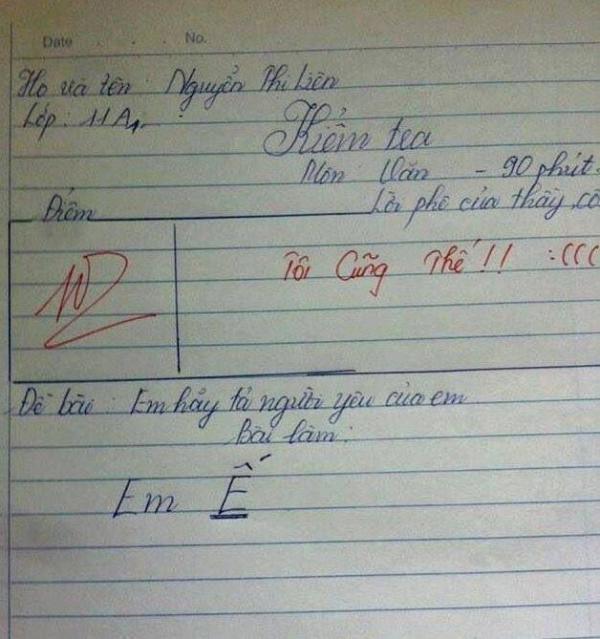 Date No.
Họ và tên : Nguyễn Thị Liên
Lớp : 11A1.
Kiểm tra
Môn Văn - 90 phút.
Điểm Lời phê của thầy, cô
10 Tôi Cũng Thế !! :(((
Đề bài : Em hãy tả người yêu của em
Bài làm :
Em Ế